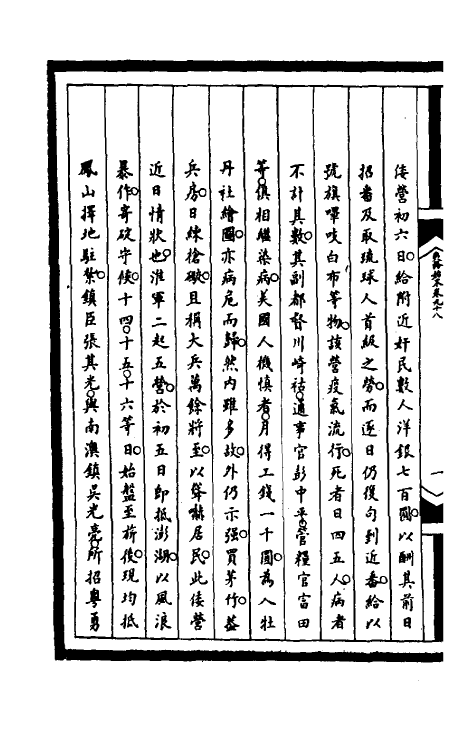 倭營初六日。給附近奸民數人洋銀七百圓。以酬其前日
招番及取琉球人首級之勞。而逐日仍復句到近番。給以
號旗嗶吱白布等物。該營疫氣流行。死者日四五人。病者
不計其數。其副都督川崎祐。通事官彭中平。管糧官富田
等。俱相繼染病。美國人機慎者。月得工錢一千圓。為入牡
丹社繪圖。亦病危而歸。然內雖多故。外仍示强。買茅竹。蓋
兵房。日練槍礮。且稱大兵萬餘將至。以聳嚇居民。此倭營
近日情狀也。淮軍二起五營。於初五日即抵澎湖。以風浪
暴作。寄碇守候。十四。十五。十六等日。始盤至前後。現均抵
鳳山擇地駐紮。鎮臣張其光。與南澳鎮吳光亮。所招粵勇
一